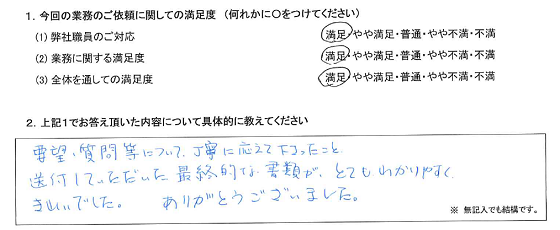 1．今回の業務のご依頼に関しての満足度　（何れかに〇をつけてください）
(1) 弊社職員のご対応　満足・やや満足・普通・やや不満・不満
(2) 業務に関する満足度　満足・やや満足・普通・やや不満・不満
(3) 全体を通しての満足度　満足・やや満足・普通・やや不満・不満
2．上記１でお答え頂いた内容について具体的に教えてください
要望・質問等について、丁寧に応えて下さったこと
送付していただいた最終的な書類が、とてもわかりやすく
きれいでした。　ありがとうございました。
※ 無記入でも結構です。